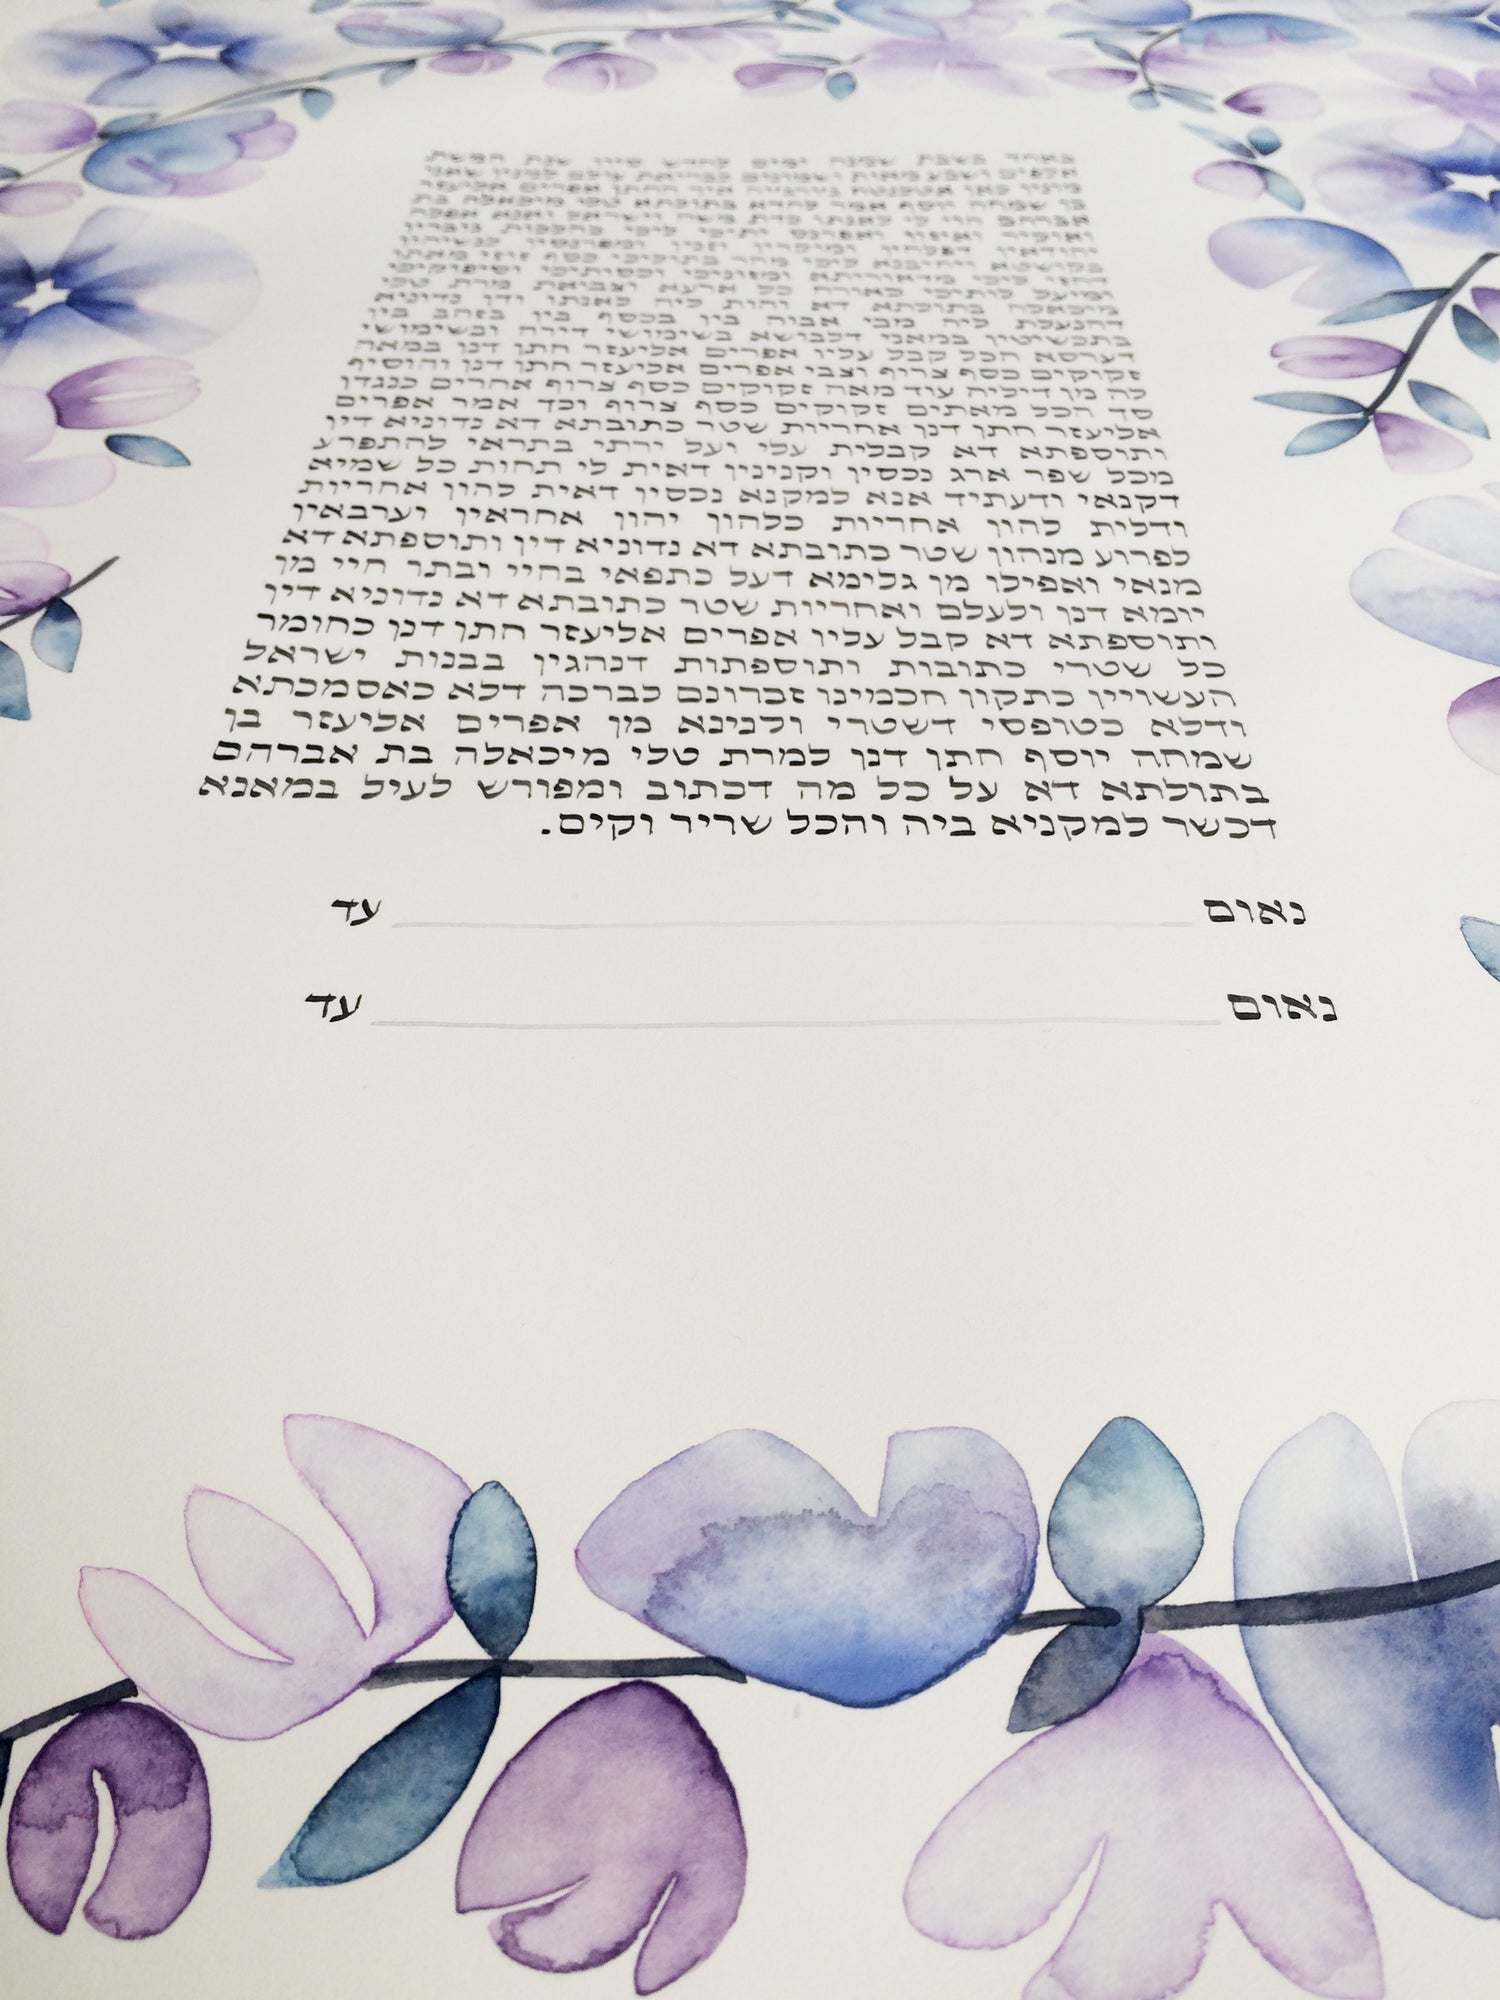 באחד בשבת שמנה ימים לחדש סיון שנת חמשת
אלפים ושבע מאות ושמונים לבריאת עולם למנין שאנו
מונין כאן אטלנטה ג׳ורג׳יה איך החתן אפרים אליעזר
בן שמחה יוסף אמר להדא בתולתא טלי מיכאלה בת
אברהם הוי לי לאנתו כדת משה וישראל ואנא אפלח
ואוקיר ואיזון ואפרנס יתיכי ליכי כהלכות גוברין
יהודאין דפלחין ומוקרין וזנין ומפרנסין לנשיהון
בקושטא ויהיבנא ליכי מהר בתוליכי כסף זוזי מאתן
דחזי ליכי מדאוריתא ומזוניכי וכסותיכי וסיפוקיכי
ומיעל לותיכי כאורח כל ארעא וצביאת מרת טלי
מיכאלה בתולתא דא והות ליה לאנתו ודן נדוניא
דהנעלת ליה מבי אבוה בין בכסף בין בזהב בין
בתכשיטין במאני דלבושא בשימושי דירה ובשימושי
דערסא הכל קבל עליו אפרים אליעזר חתן דנן במאה
זקוקים כסף צרוף וצבי אפרים אליעזר חתן דנן והוסיף
לה מן דיליה עוד מאה זקוקים כסף צרוף אחרים כנגדן
סך הכל מאתים זקוקים כסף צרוף וכך אמר אפרים
אליעזר חתן דנן אחריות שטר כתובתא דא נדוניא דין
ותוספתא דא קבלית עלי ועל ירתי בתראי להתפרע
מכל שפר ארג נכסין וקנינין דאית לי תחות כל שמיא
דקנאי ודעתיד אנא למקנא נכסין דאית להון אחריות
ודלית להון אחריות כלהון יהון אחראין וערבאין
לפרוע מנהון שטר כתובתא דא נדוניא דין ותוספתא דא
מנאי ואפילו מן גלימא דעל כתפאי בחיי ובתר חיי מן
יומא דנן ולעלם ואחריות שטר כתובתא דא נדוניא דין
ותוספתא דא קבל עליו אפרים אליעזר חתן דנן כחומר
כל שטרי כתובות ותוספתות דנהגין בבנות ישראל
העשויין כתקון חכמינו זכרונם לברכה דלא כאסמכתא
ודלא כטופסי דשטרי וקנינא מן אפרים אליעזר בן
שמחה יוסף חתן דנן למרת טלי מיכאלה בת אברהם
בתולתא דא על כל מה דכתוב ומפורש לעיל במאנא
דכשר למקניא ביה והכל שריר וקים.
נאום עד
נאום עד